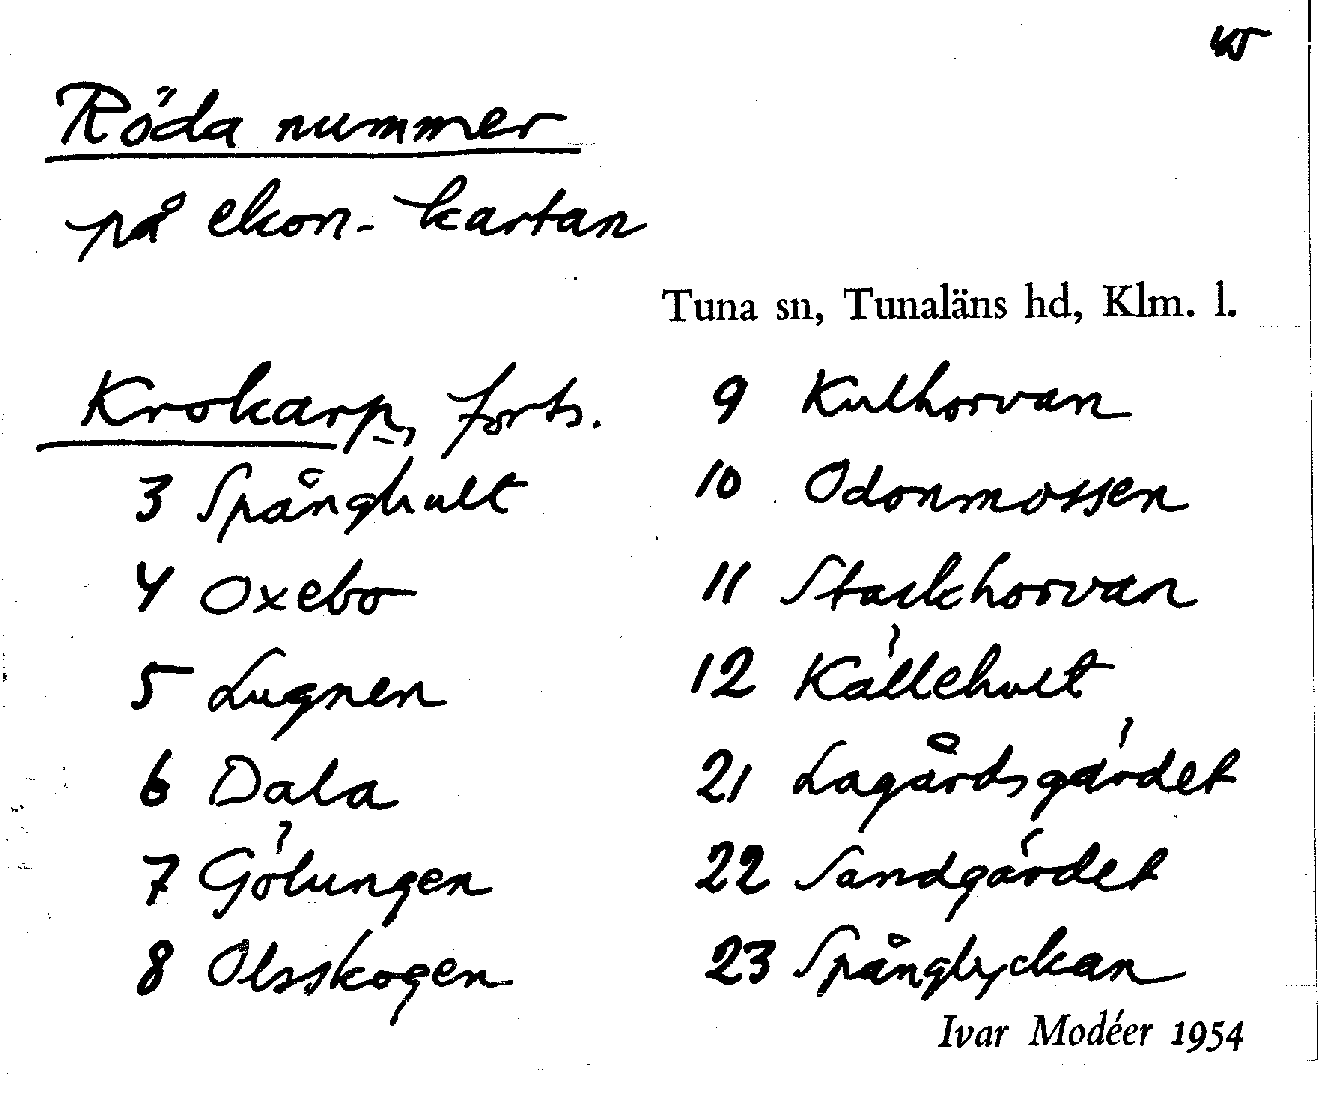 45
Röda nummer
på ekon. kartan
Tuna sn, Tunaläns hd, Klm. l.
Krokarp, forts.
3 Spånghult
4 Oxebo
5 Lugnen
6 Dala
7 Gölungen
8 Olsskogen
9 Kulhorvan
10 Odonmossen
11 Stackhorvan
12 Källehult
21 Lagårdsgärdet
22 Sandgärdet
23 Spånglyckan
Ivar Modéer 1954